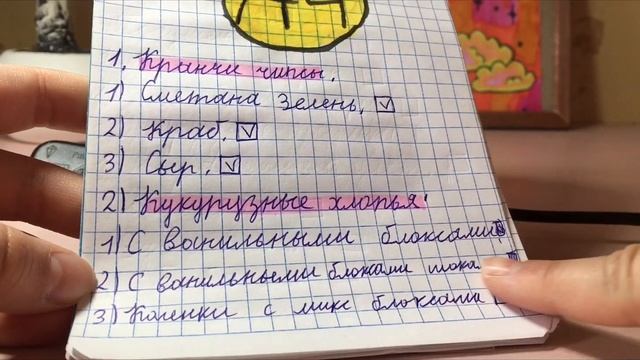 1. Кранчи чипсы.
1) Сметана Зелень.
2) Краб.
3) Сыр.
2) Кукурузные хлопья.
1) С ванильными блоксами
2) С ванильными блоками
3) Коленки с микс блоксами